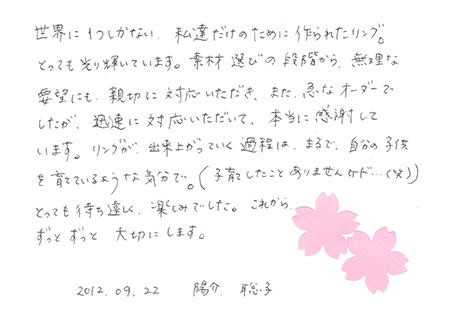 世界に1つしかない、私達だけのために作られたリング。
とっても光り輝いています。素材選びの段階から、無理な
要望にも、親切に対応いただき、また、急なオーダーで
したが、迅速に対応いただいて、本当に感謝して
います。リングが、出来上がっていく過程は、まるで、自分の子供
を育てているような気分で。(子育てしたことありませんケド…(笑))
とっても待ち遠しく、楽しみでした。これから、
ずっとずっと 大切にします。
2012.09.22 陽介、聡子